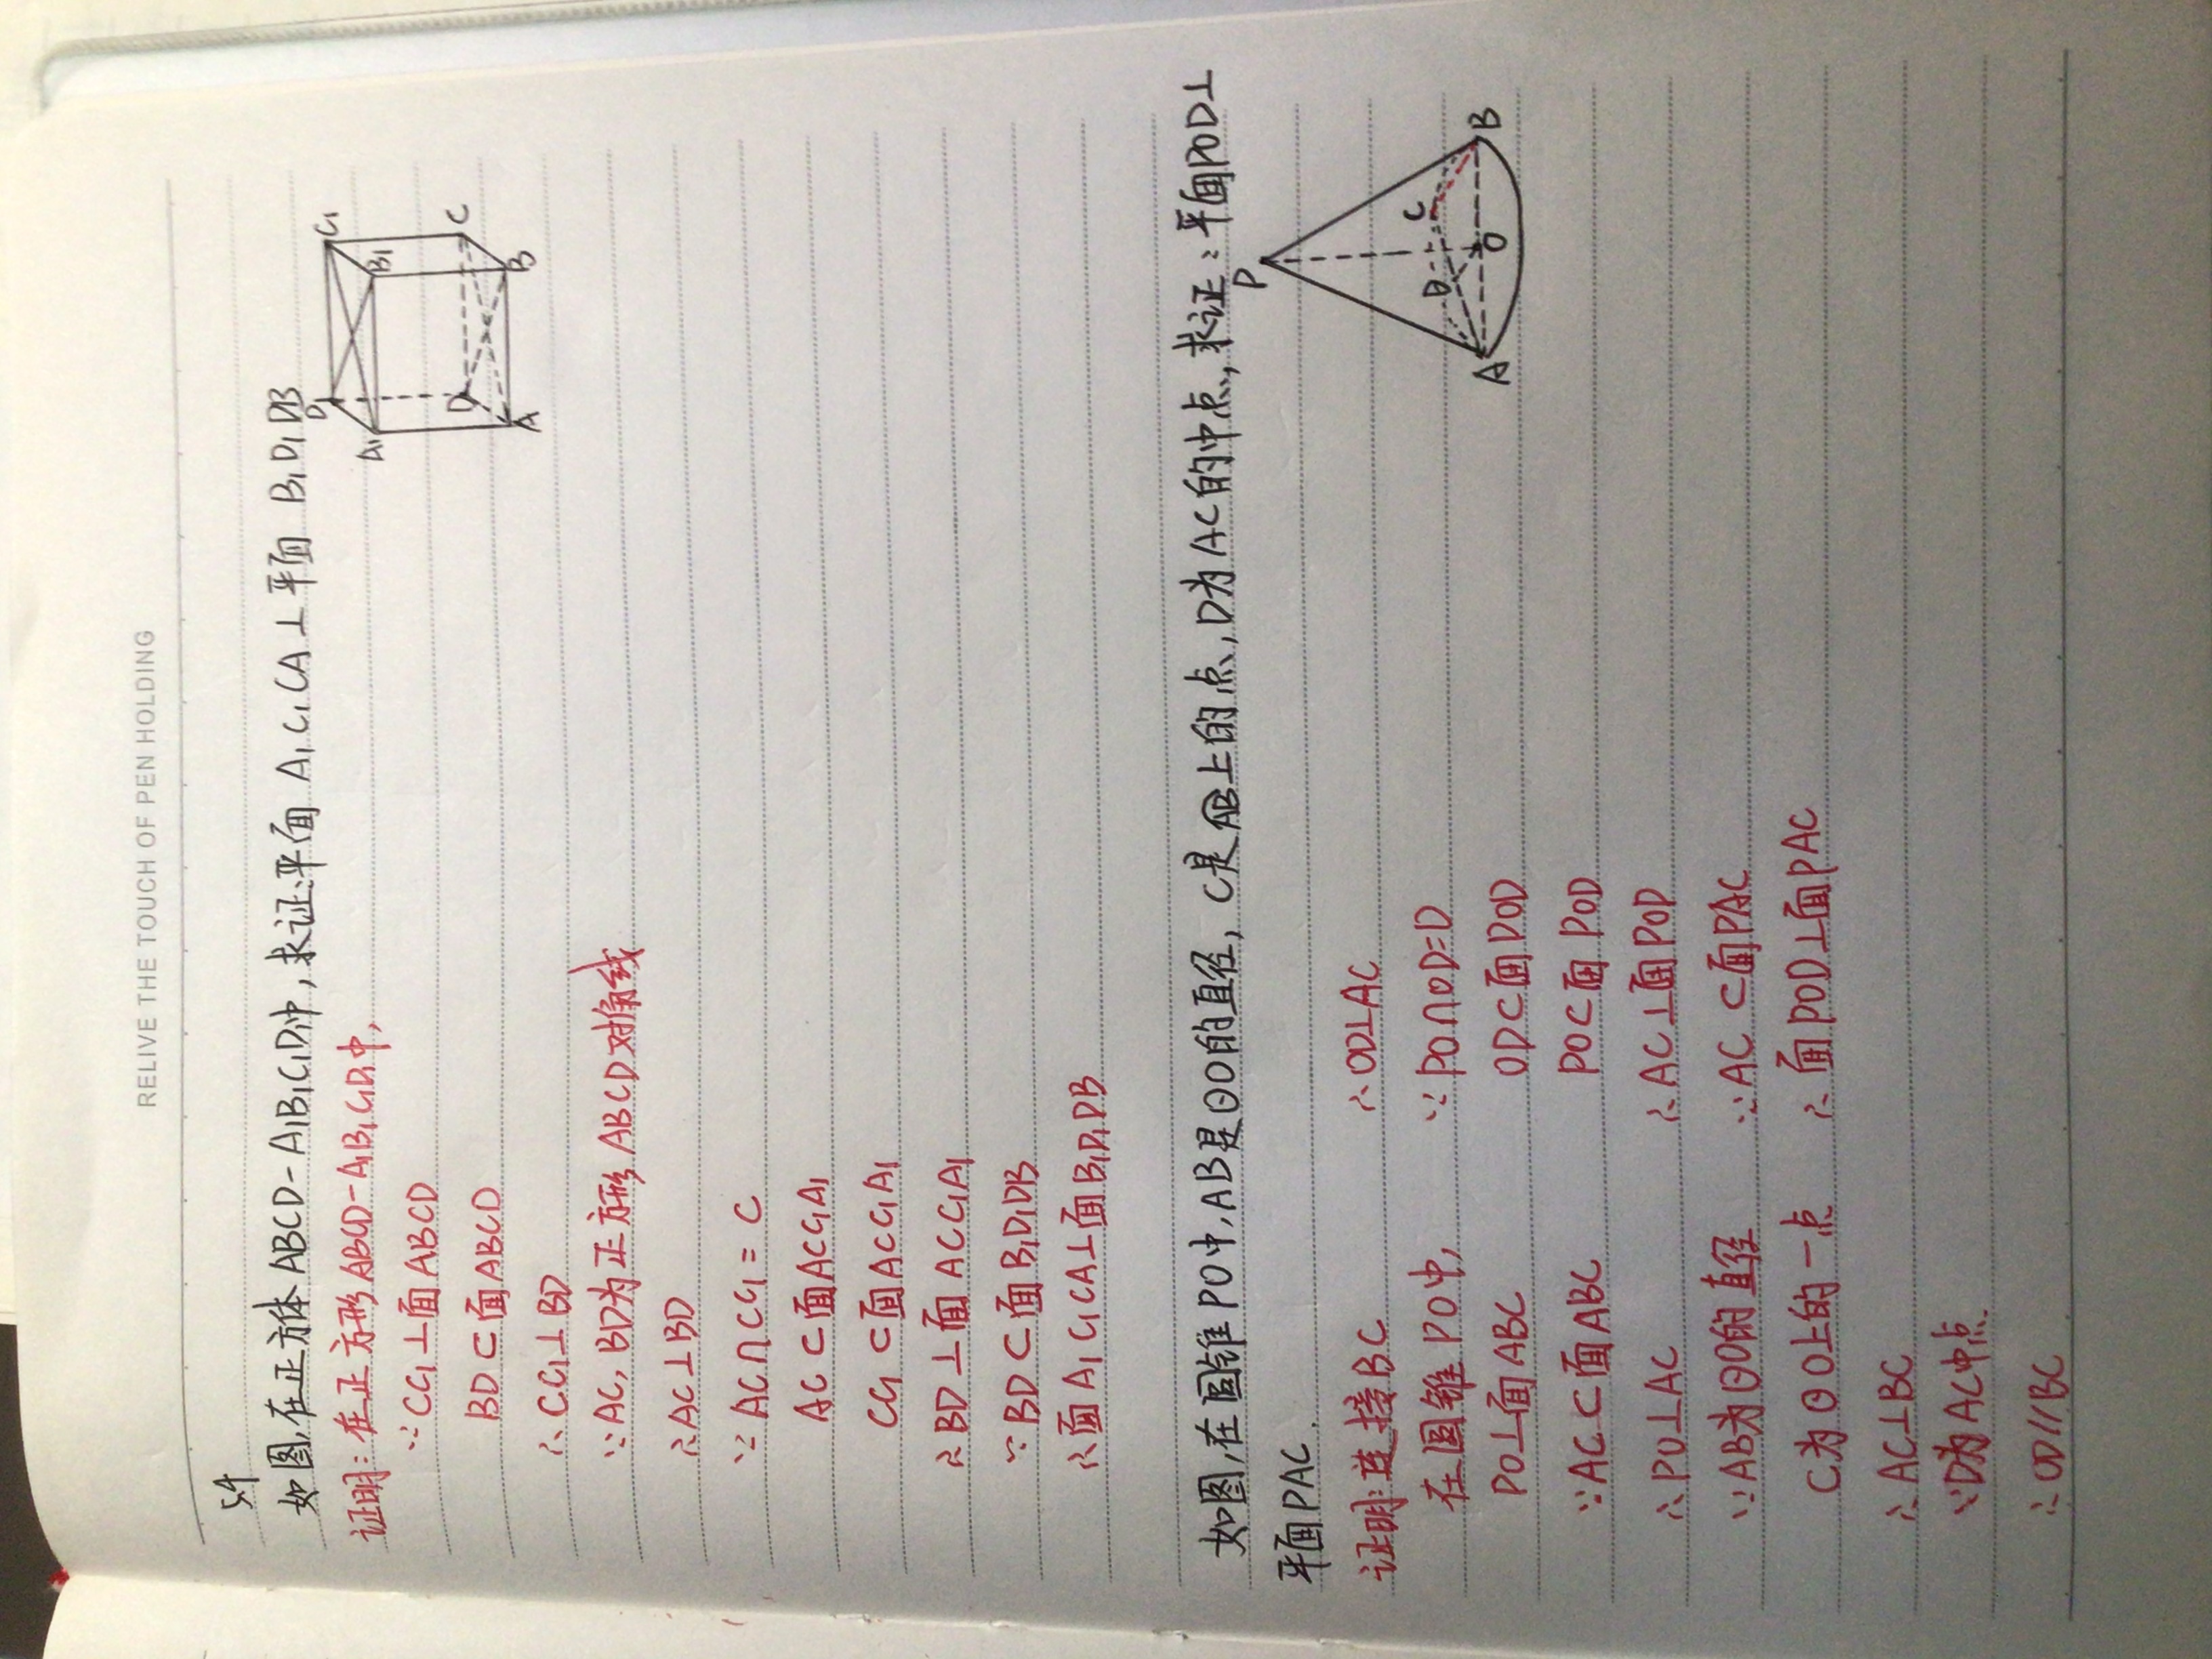 RELIVE THE TOUCH OF PEN HOLDING
54
如图,在正方体ABCD-A₁B₁C₁D₁中,求证:平面 A₁C₁CA⊥平面 B₁D₁DB
证明:在正方形ABCD-A₁B₁C₁D₁中,
∵CC₁⊥面ABCD
BD⊂面ABCD
∴CC₁⊥BD
∵AC,BD为正方形ABCD对角线
∴AC⊥BD
∵AC∩CC₁=C
AC⊂面ACC₁A₁
CC₁⊂面ACC₁A₁
∴BD⊥面ACC₁A₁
∵BD⊂面B₁D₁DB
∴面A₁C₁CA⊥面B₁D₁DB
D₁
C₁
A₁
B₁
D
C
A
B
如图,在圆锥PO中,AB是⊙O的直径,C是AB上的点,D为AC的中点,求证:平面POD⊥
平面PAC.
证明:连接BC
在圆锥PO中,
PO⊥面ABC
∵AC⊂面ABC
∴PO⊥AC
∵AB为⊙O的直径
C为⊙O上的一点
∴AC⊥BC
∵D为AC中点
∴OD//BC
∴OD⊥AC
∵PO∩OD=D
OD⊂面POD
PO⊂面POD
∴AC⊥面POD
∵AC⊂面PAC
∴面POD⊥面PAC
P
C
D
A
O
B